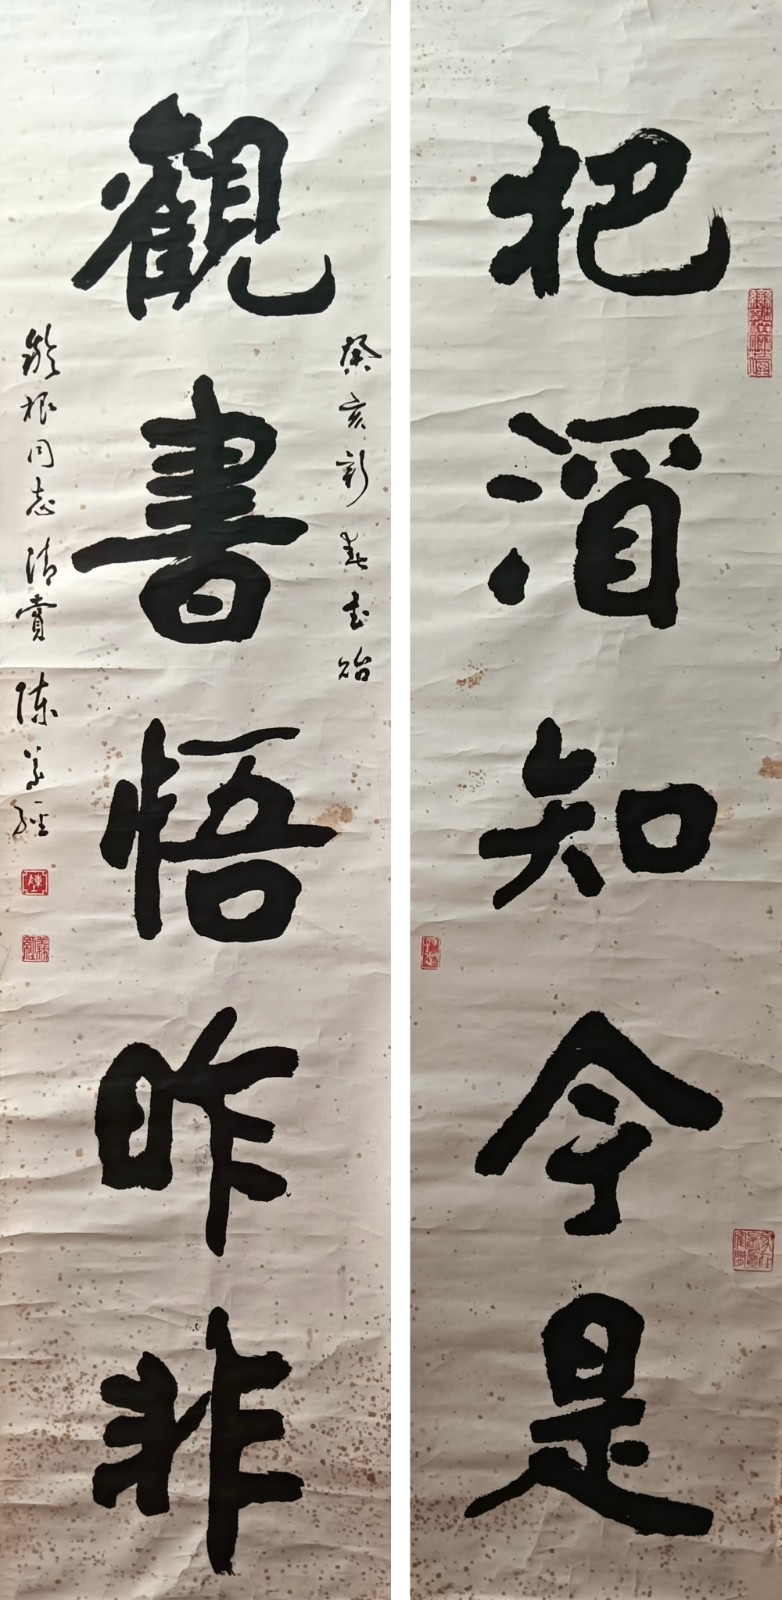 把酒知今是
觀書悟昨非
癸亥新春書貽
根同志清賞 陳義經